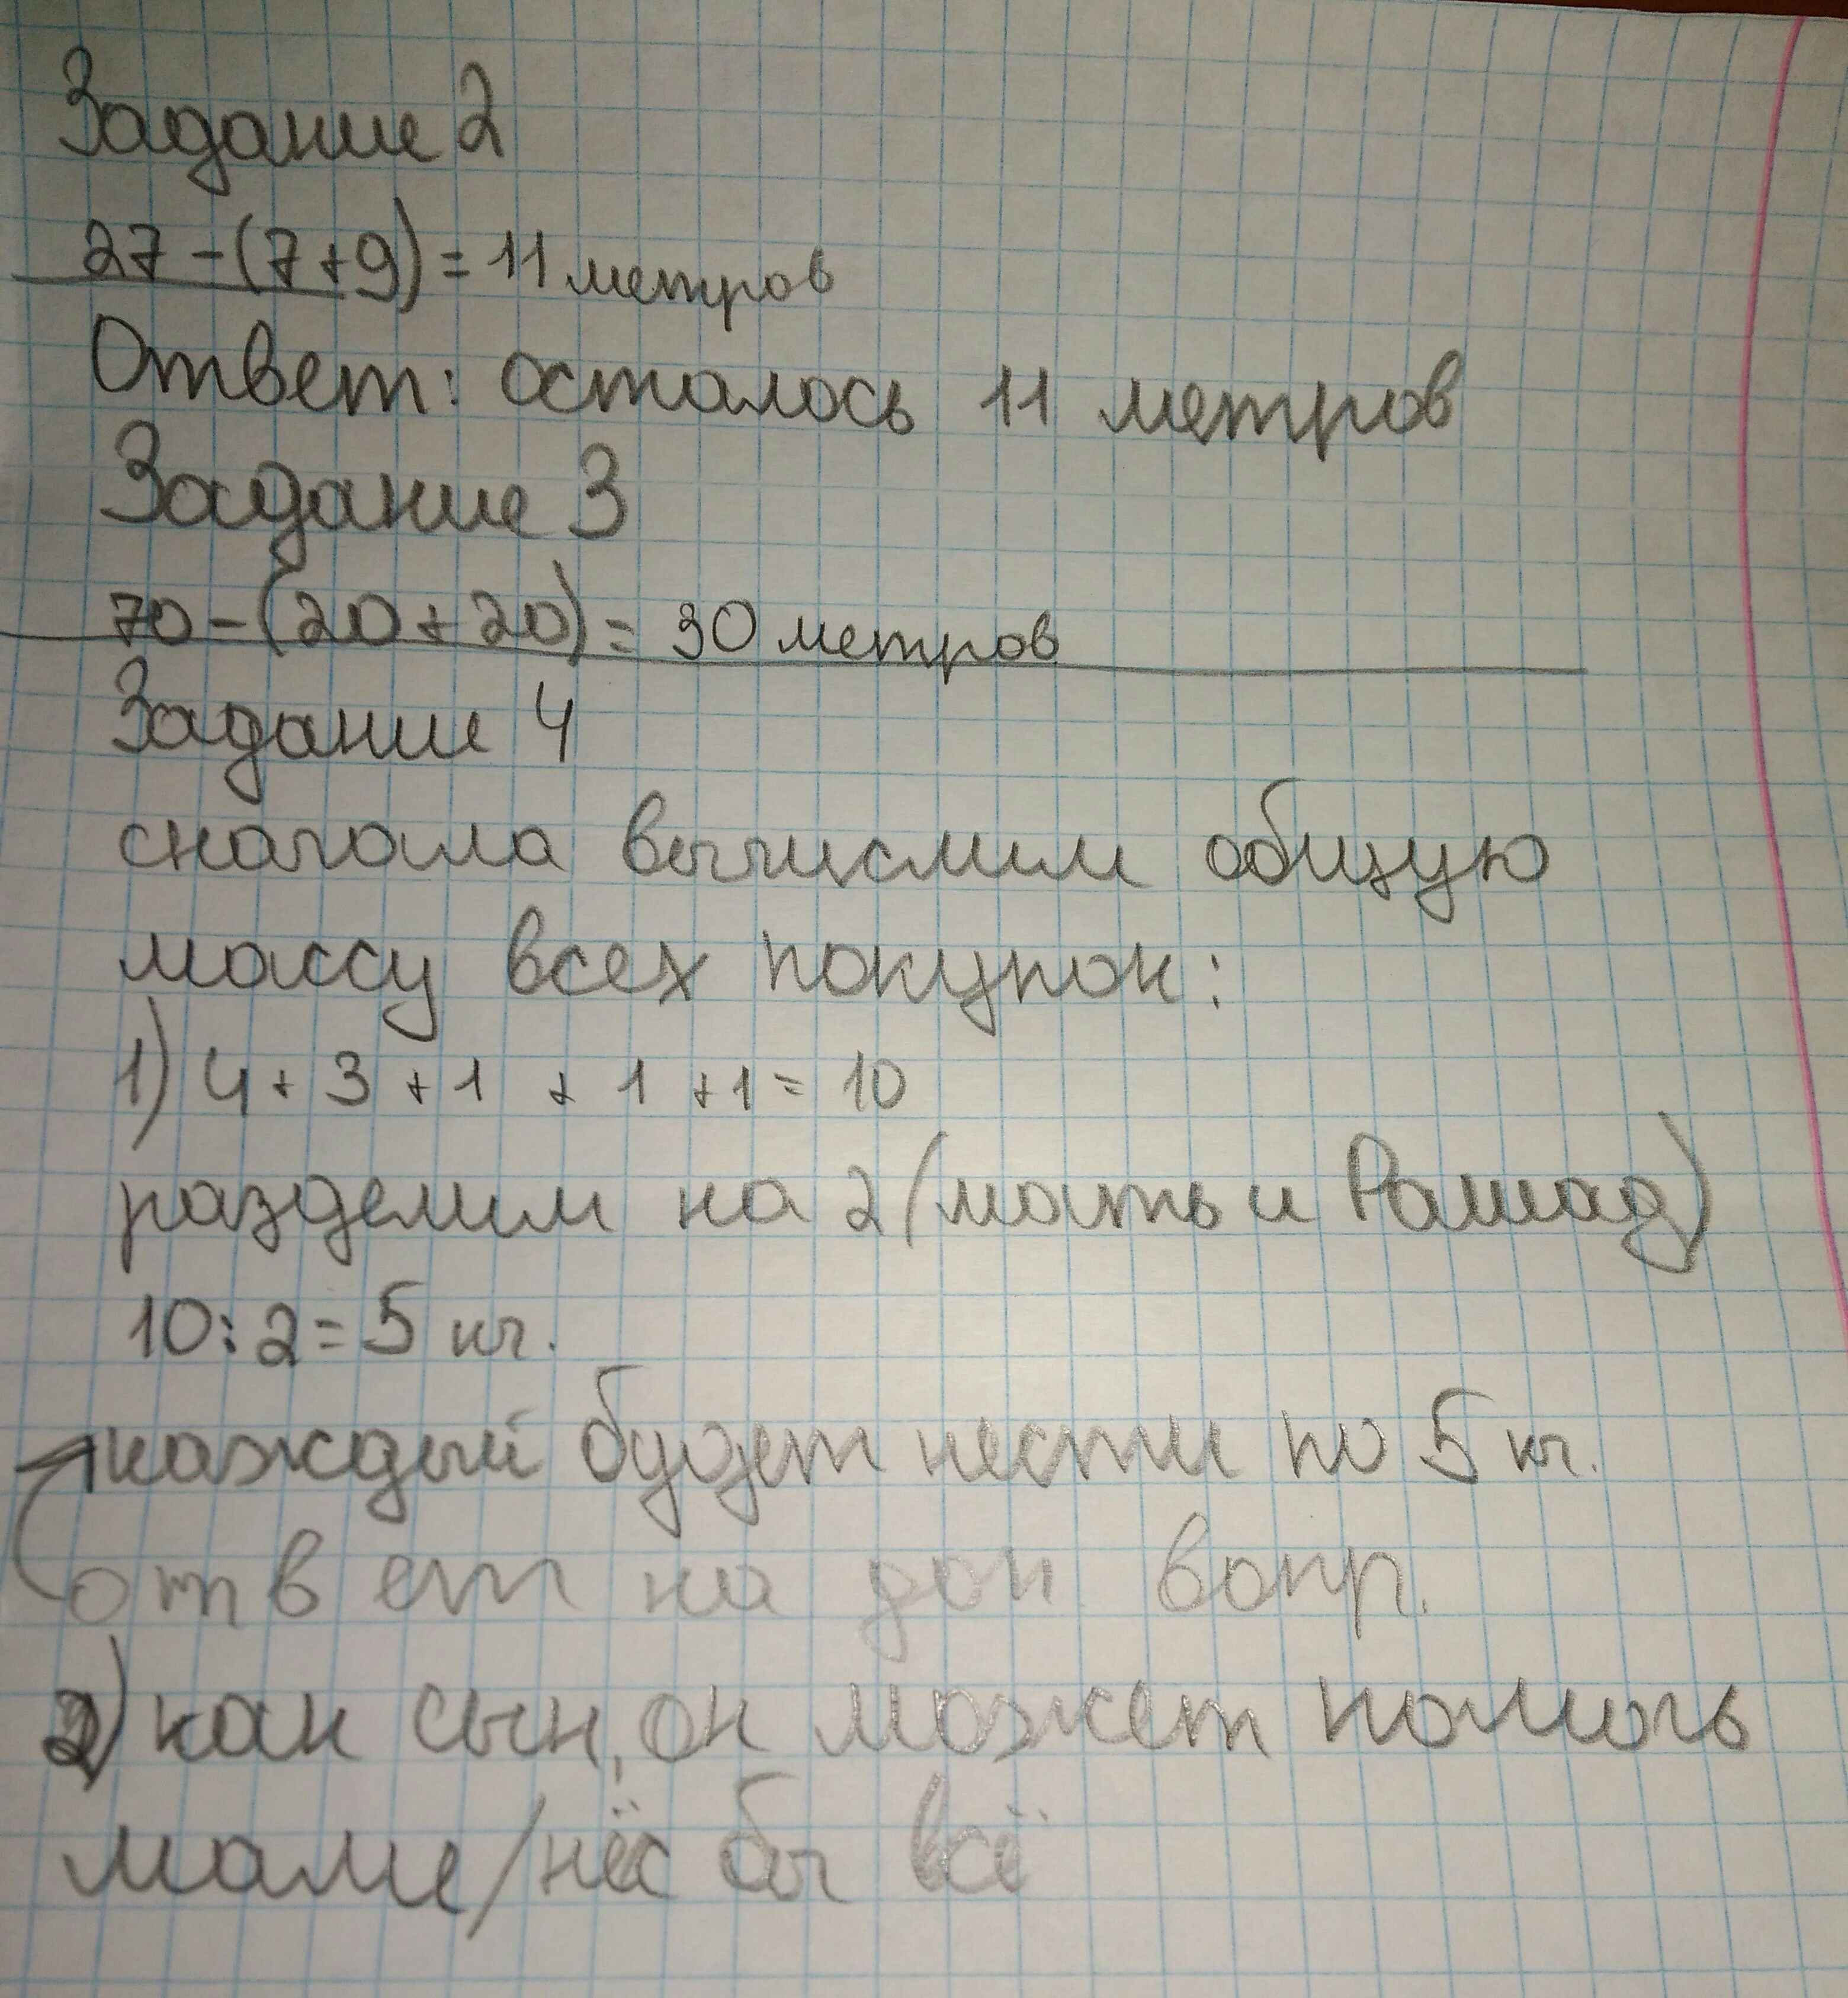 Задание 2
27-(7+9)=11 метров
Ответ: осталось 11 метров
Задание 3
70-(20+20)= 30 метров
Задание 4
сначала вычислим общую
массу всех покупок:
1) 4+3+1+1+1=10
разделим на 2 (мать и Рашад)
10:2=5 кг.
каждый будет нести по 5 кг.
ответ на доп. вопр.
2) как сын, он может помочь
маме/нёс бы всё